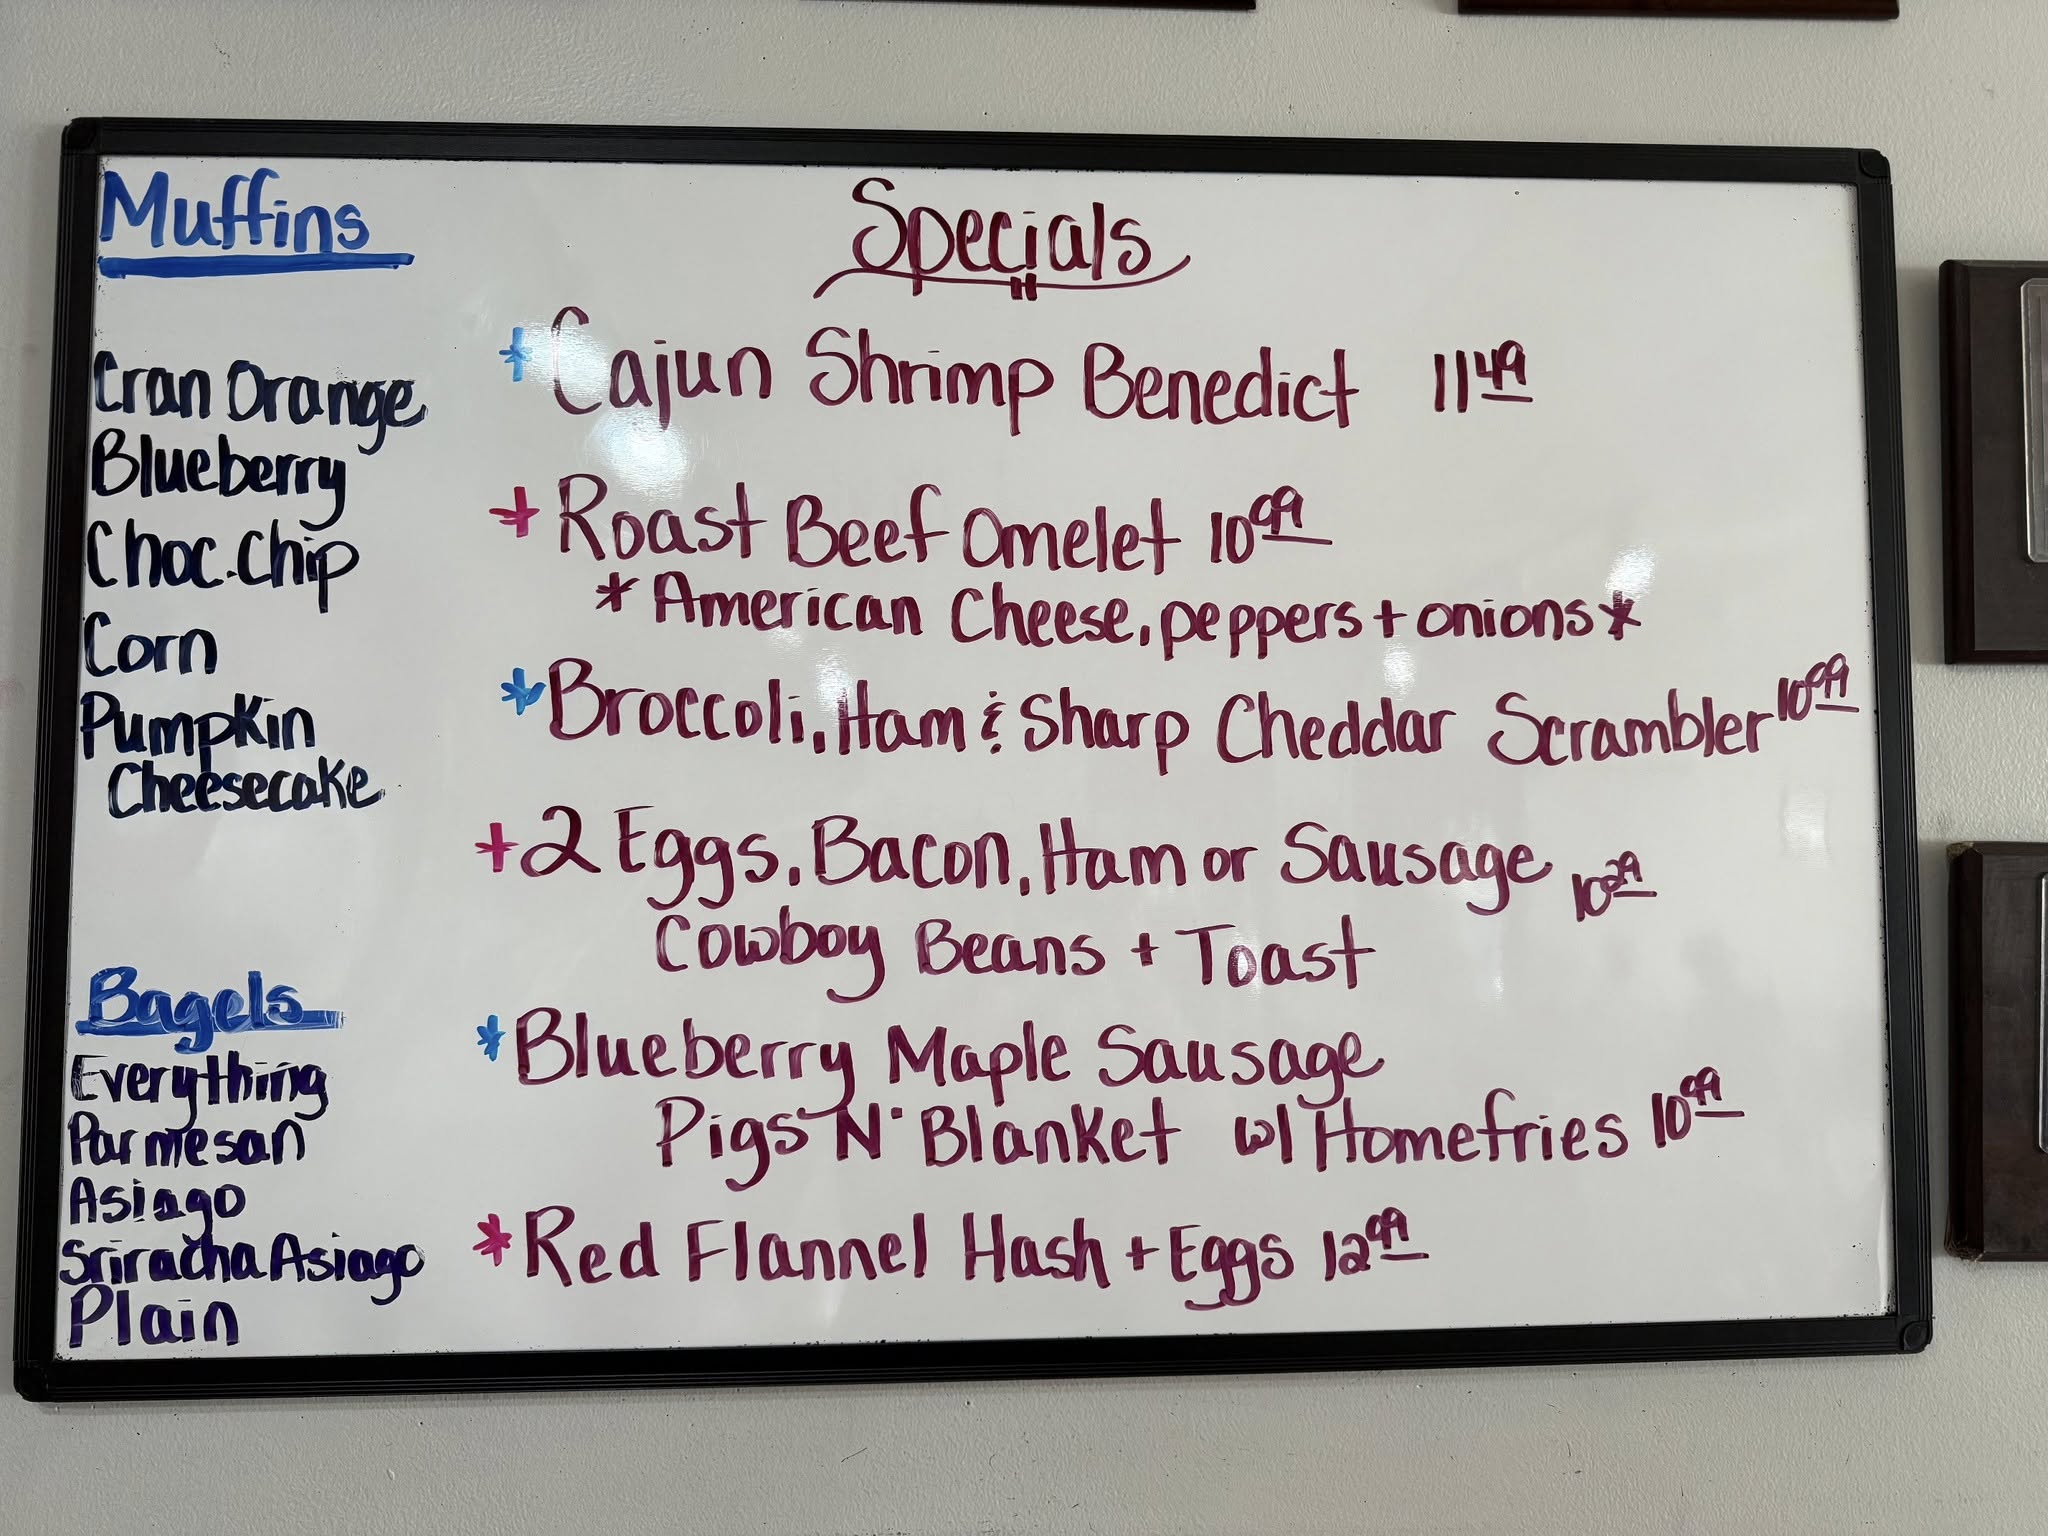 Muffins
Cran Orange
Blueberry
Choc. Chip
Corn
Pumpkin
Cheesecake
Bagels
Everything
Parmesan
Asiago
Sriracha Asiago
Plain
Specials
* Cajun Shrimp Benedict 11.49
+ Roast Beef Omelet 10.99
* American Cheese, peppers + onions *
* Broccoli, Ham & Sharp Cheddar Scrambler 10.99
+ 2 Eggs, Bacon, Ham or Sausage 10.29
Cowboy Beans + Toast
* Blueberry Maple Sausage
Pigs N' Blanket w/ Homefries 10.99
* Red Flannel Hash + Eggs 12.99